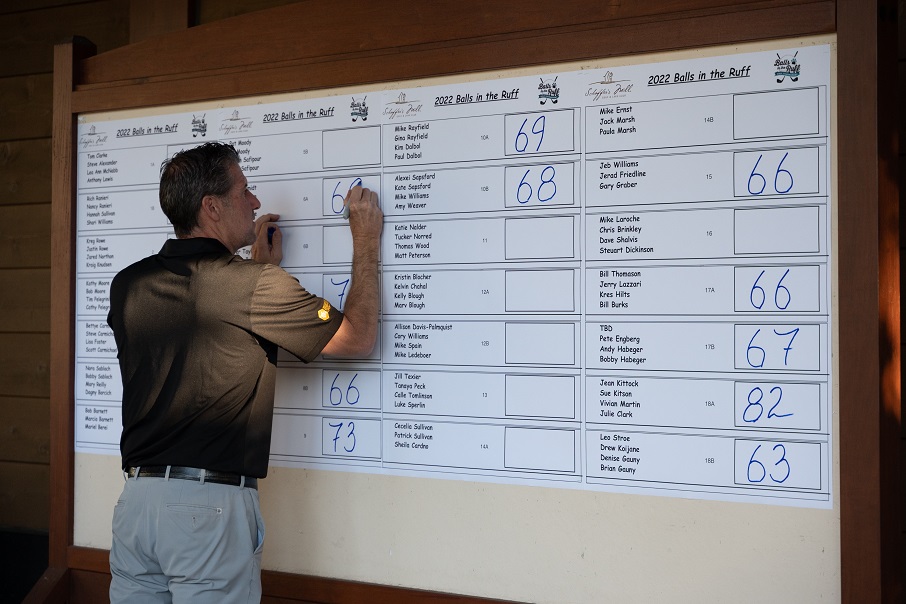 2022 Balls in the Ruff
Tim Clarke
Steve Alexander
Lou Ann McNabb
Anthony Lewis
Rich Ranieri
Nancy Ranieri
Hannah Sullivan
Sheri Williams
Kreg Rowe
Justin Rowe
Jared Nathan
Kraig Knudsen
Kathy Moore
Bob Moore
Tim
Cathy
Bettye
Steve
Lisa Foster
Scott
Nora Sabloch
Bobby Sabloch
Mary Reilly
Dagny
Bob Barnett
Marcia Barnett
2022 Balls in the Ruff
Moody
Moody
Safipour
Safipour
5B
6A
6B
7
8B 66
9 73
2022 Balls in the Ruff
Mike Rayfield
Gina Rayfield
Kim Dalbol
Paul Dalbol
10A 69
Alexei Sapsford
Kate Sapsford
Mike Williams
Amy Weaver
10B 68
Katie Nelder
Tucker Norred
Thomas Wood
Matt Peterson
11
Kristin Blacher
Kelvin Chahal
Kelly Blough
Marv Blough
12A
Allison Davis-Palmquist
Cory Williams
Mike Spain
Mike Ledeboer
12B
Jill Texier
Tanaya Peck
Calle Tomlinson
Luke Sperlin
13
Cecelia Sullivan
Patrick Sullivan
Sheila Cardno
14A
2022 Balls in the Ruff
Balls in the Ruff
Mike Ernst
Jack Marsh
Paula Marsh
14B
Jeb Williams
Jerad Friedline
Gary Graber
15 66
Mike Laroche
Chris Brinkley
Dave Shalvis
Steuart Dickinson
16
Bill Thomason
Jerry Lazzari
Kres Hilts
Bill Burks
17A 66
TBD
Pete Engberg
Andy Habeger
Bobby Habeger
17B 67
Jean Kittock
Sue Kitson
Vivian Martin
Julie Clark
18A 82
Leo Stroe
Drew Koijane
Denise Gauny
Brian Gauny
18B 63